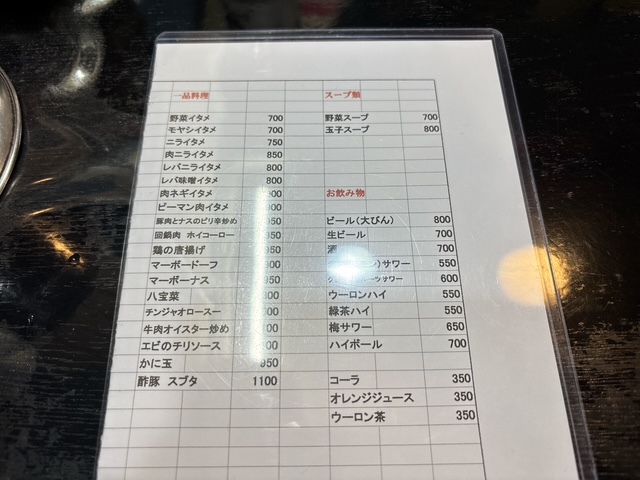 一品料理
野菜イタメ 700
モヤシイタメ 700
ニライタメ 750
肉ニライタメ 850
レバニライタメ 800
レバ味噌イタメ 800
肉ネギイタメ
ピーマン肉イタメ
豚肉とナスのピリ辛炒め
回鍋肉 ホイコーロー
鶏の唐揚げ
マーボードーフ
マーボーナス
八宝菜
チンジャオロースー
牛肉オイスター炒め
エビのチリソース
かに玉 950
酢豚 スブタ 1100
スープ類
野菜スープ 700
玉子スープ 800
お飲み物
ビール(大びん) 800
生ビール 700
酒 700
サワー 550
サワー 600
ウーロンハイ 550
緑茶ハイ 550
梅サワー 650
ハイボール 700
コーラ 350
オレンジジュース 350
ウーロン茶 350